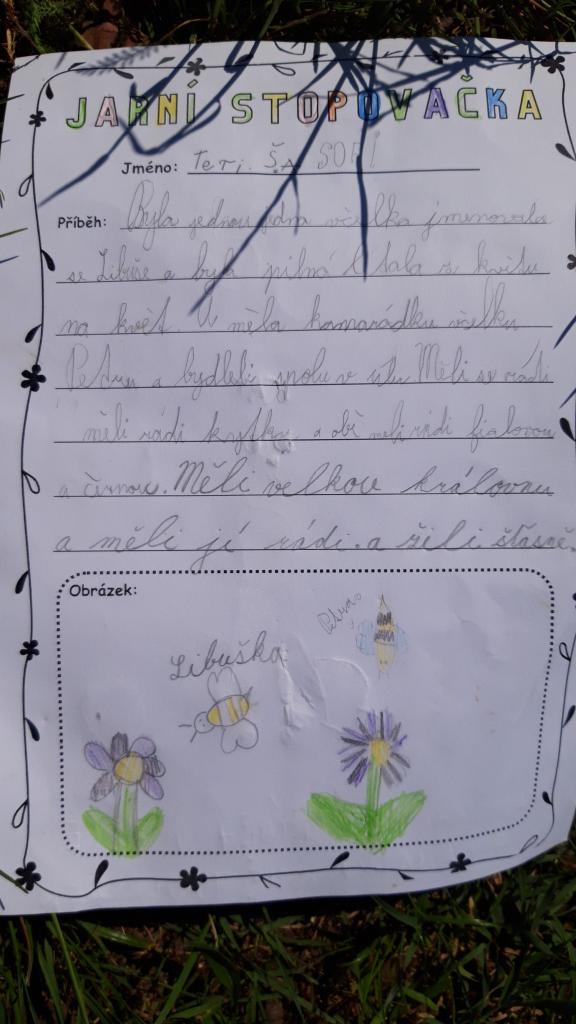 JARNÍ STOPOVAČKA
Jméno: Teri. ŠA SOFÍ
Příběh: Byla jednou jedna včelka jmenovala
se Libuše a byla pilná lítala z květu
na květ. A měla kamarádku včelku
Petru a bydleli spolu v úlu. Měli se rádi
měli rádi kytky a obě měli rádi fialovou
a černou. Měli velkou královnu
a měli jí rádi. a žili šťasně.
Obrázek:
Libuška